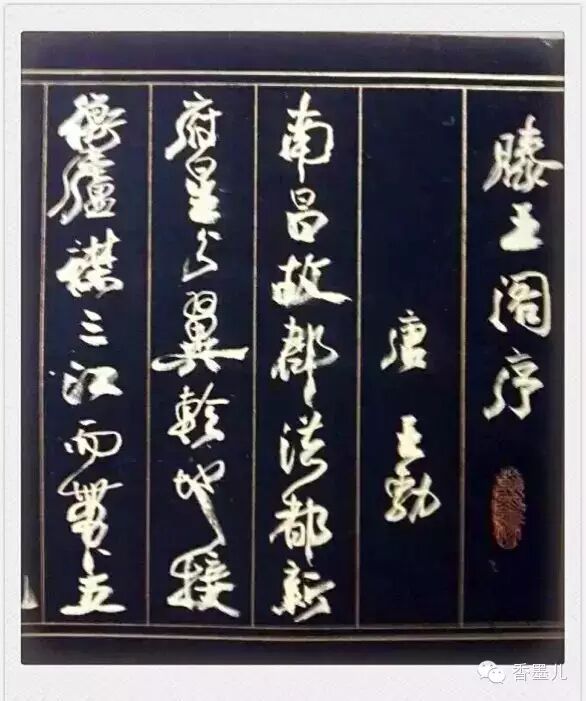 滕王阁序
唐 王勃
南昌故郡洪都新
府星分翼軫地接
衡廬襟三江而帶五
香墨儿